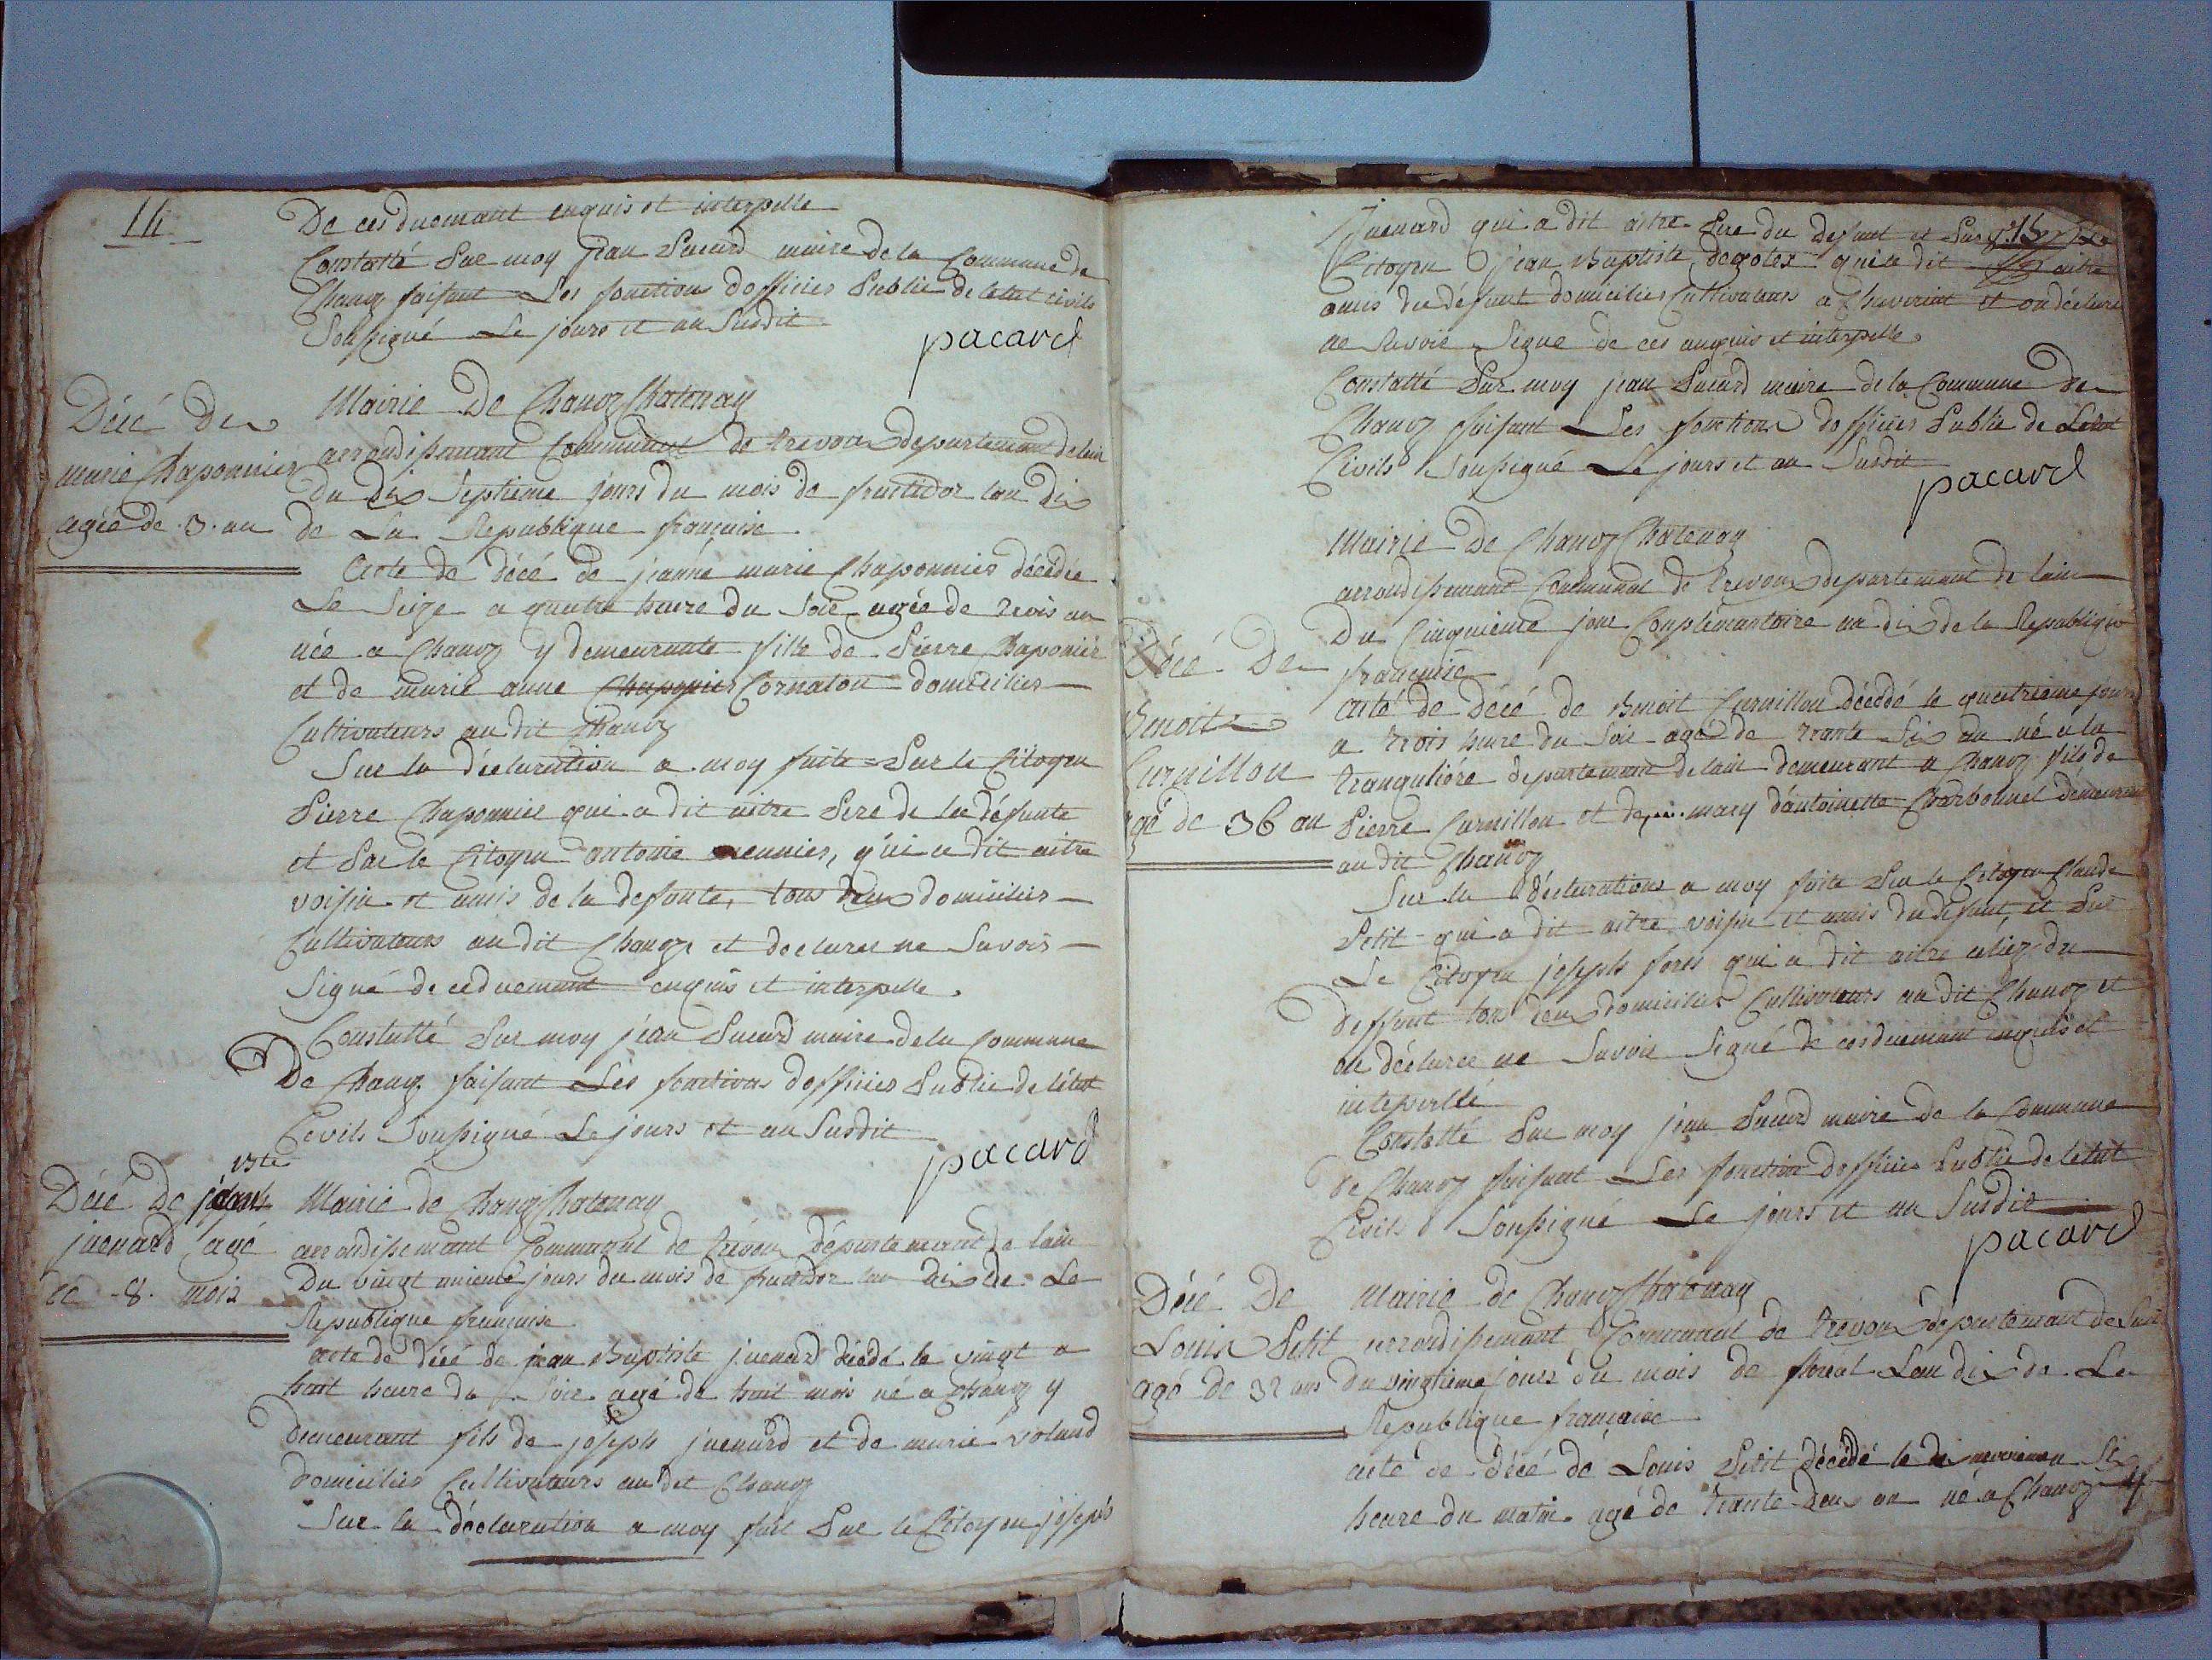 14
De ces duemant enquis et interpelle
Constatté par moy jean pacard maire de la Commune de
Chanoz faisant Les fonctions dofficier public de letat civils
Soussigné Le jours et an Susdit
pacard
Décé De
marie Chaponnier
agée de .3. an
Mairie De Chanoz Chatenay
arrondissemant Communal de trevoux departemant de lain
Du dix Septieme jours du mois de fructidor lan dix
de La Republique francaise
acte de décé de jeanne marie Chaponnier décédée
Le Seize a quatre heure du Soir agée de trois an
née a Chanoz y demeurante fille de pierre Chaponier
et de marie anne Chaponier Cornaton domicilier
Cultivateurs au dit Chanoz
Sur la déclaration a moy faite par le Citoyen
pierre Chaponnier qui a dit aitre pere de la défunte
et par le Citoyen antoine meunier, qui a dit aitre
voisin et amis de la defunte, tous deux domicilier
Cultivateurs au dit Chanoz et declarer ne Savoir
Signé de ce duemant enquis et interpelle.
Constatté par moy jean pacard maire de la Commune
De Chanoz faisant Les fonctions dofficier public de létat
Cevils Soussigné Le jours et an Susdit
pacard
Décé De joseph bte
juenard agé
de - 8. mois
Mairie de Chanoz Chatenay
arrondissemant Communal de trévoux départemant de lain
Du vingt unieme jours du mois de fructidor lan dix de La
Republique francaise
acte de décé de jean Baptiste juenard décédé le vingt a
huit heure du Soir agé de huit mois né a Chanoz y
demeurant fils de joseph juenard et de marie voland
domicilier Cultivateurs au dit Chanoz
Sur la déclaration a moy fait par le Citoyen joseph
15
juenard qui a dit aitre pere du defunt et par le
Citoyen jean Baptiste degoles qui a dit aitre
amis du défunt domicilier Cultivateurs a Chaveriat et on déclaré
ne Savoir Signe de ces enquis et interpelle.
Constatté par moy jean pacard maire de la Commune De
Chanoz faisant Les fonctions dofficier public de Letat
Civils Soussigné Le jours et an Susdit
pacard
Mairie De Chanoz Chatenay
arrondissemant Communal de trevoux departemant de lain
Du Cinquieme jour Complémantaire an dix de la Republique
francaise
Décé De
Benoit
Curnillon
agé de 36 an
acté de décé de Benoit Curnillon décédé le quatrieme jours
a trois heure du Soir agé de trante Six an né a la
tranquliére departemant de lain demeurant a Chanoz fils de
pierre Curnillon et de mary dantoinette Charbonnel demeurant
au dit Chanoz
Sur la déclarations a moy faite par le Citoyen Claude
petit qui a dit aitre voisin et amis du defunt et par
Le Citoyen joseph qui a dit aitre du
deffunt tous deux domicilier Cultivateurs au dit Chanoz et
on déclarée ne Savoir Signé de ces duemant enquis et
intepellé
Constatté par moy jean pacard maire de la Commune
de Chanoz faisant Les fonction dofficier public de letat
Civils Soussigné Le jours et an Susdit
pacard
Décé De
Louis petit
agé de 32 ans
Mairie de Chanoz Chatenay
arrondissemant Communal de trevoux departemant de lain
du vingtieme jours du mois de floreal Lan dix de La
Republique francaise
acté de décé de Louis petit décédé le dix neuvieme a Six
heure du matin agé de trante deux an né a Chanoz y